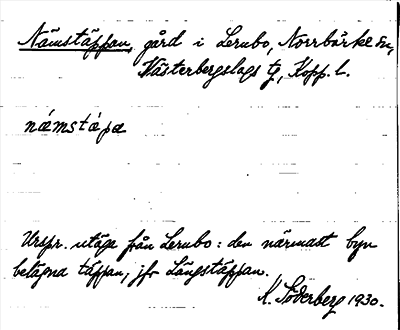 Nämstäppan, gård i Lernbo, Norrbärke sn,
Västerbergslags tg, Kopp. l.
nǽmstæ̀pa
Urspr. utäga från Lernbo: den närmast byn
belägna täppan, jfr Långstäppan.
K. Söderberg 1930.